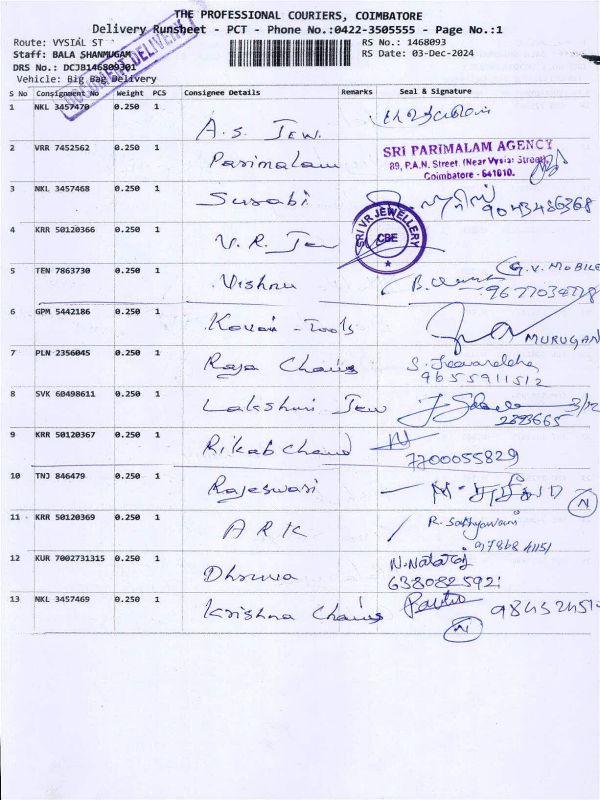 THE PROFESSIONAL COURIERS, COIMBATORE
Delivery Runsheet - PCT - Phone No.:0422-3505555 - Page No.:1
Route: VYSIAL ST
RS No.: 1468093
Staff: BALA SHANMUGAM
RS Date: 03-Dec-2024
DRS No.: DCJB146809301
Vehicle: Big Bag Delivery
S No Consignment No Weight PCS Consignee Details Remarks Seal & Signature
1 NKL 3457470 0.250 1 A.S. Jew.
2 VRR 7452562 0.250 1 Parimalam
SRI PARIMALAM AGENCY
89, P.A.N. Street, (Near Vysial Street),
Coimbatore - 641010.
3 NKL 3457468 0.250 1 Surabi
9043486368
SRI VR JEWELLERY
CBE
4 KRR 50120366 0.250 1 V.R. Jew
5 TEN 7863730 0.250 1 Vishnu
G.V. MOBILE
6 GPM 5442186 0.250 1 Kovai - Tools
MURUGAN
7 PLN 2356045 0.250 1 Raja Chains
9655911512
8 SVK 60498611 0.250 1 Lakshmi Jew
9 KRR 50120367 0.250 1 Rikab Chand
7700055829
10 TNJ 846479 0.250 1 Rajeswari
N
11 KRR 50120369 0.250 1 ARK
R. Sathyavani
12 KUR 7002731315 0.250 1 Dhruva
N. Nataraj
6380825921
13 NKL 3457469 0.250 1 Krishna Chains
N